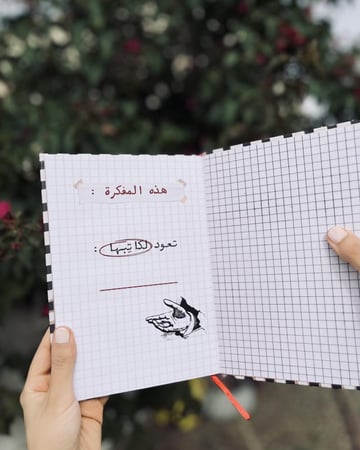 هذه المفكرة :
تعود لكاتبها :